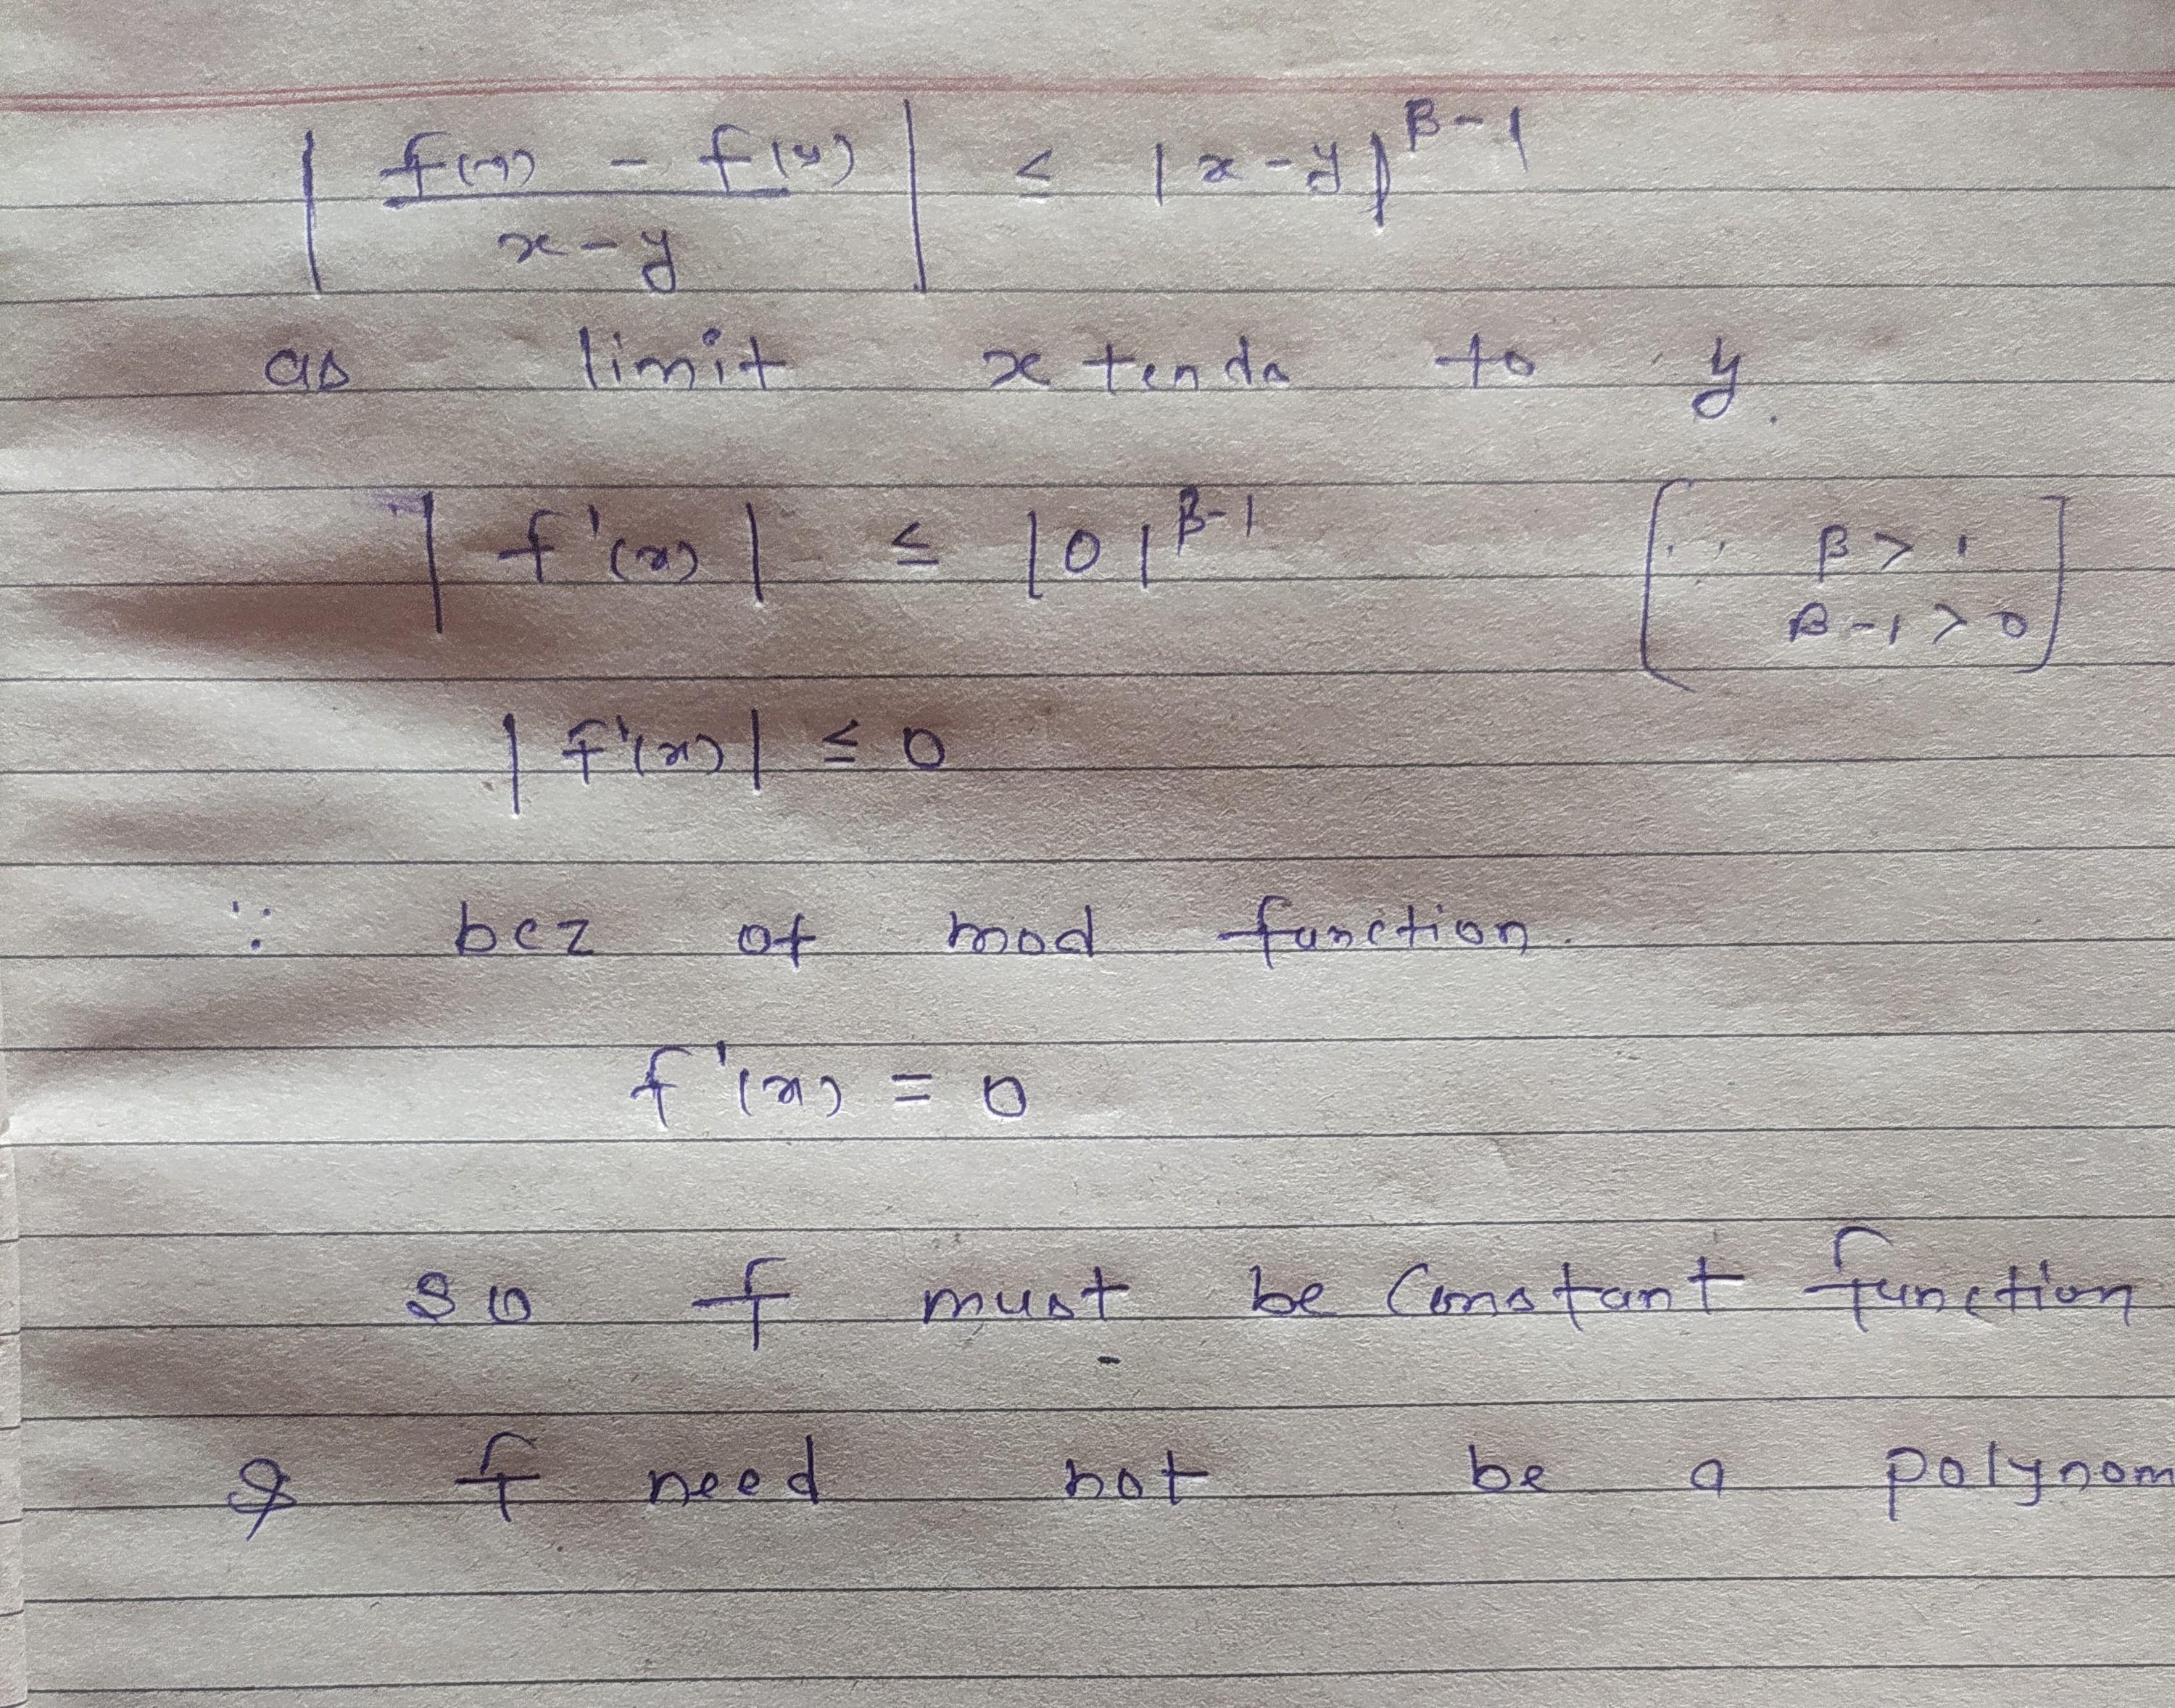 | f(x) - f(y) / x-y | ≤ |x-y|^β-1
as limit x tends to y.
|f'(x)| ≤ |0|^β-1 [∵ β>1
β-1>0]
|f'(x)| ≤ 0
∵ bcz of mod function.
f'(x) = 0
so f must be Constant function
& f need not be a polynom